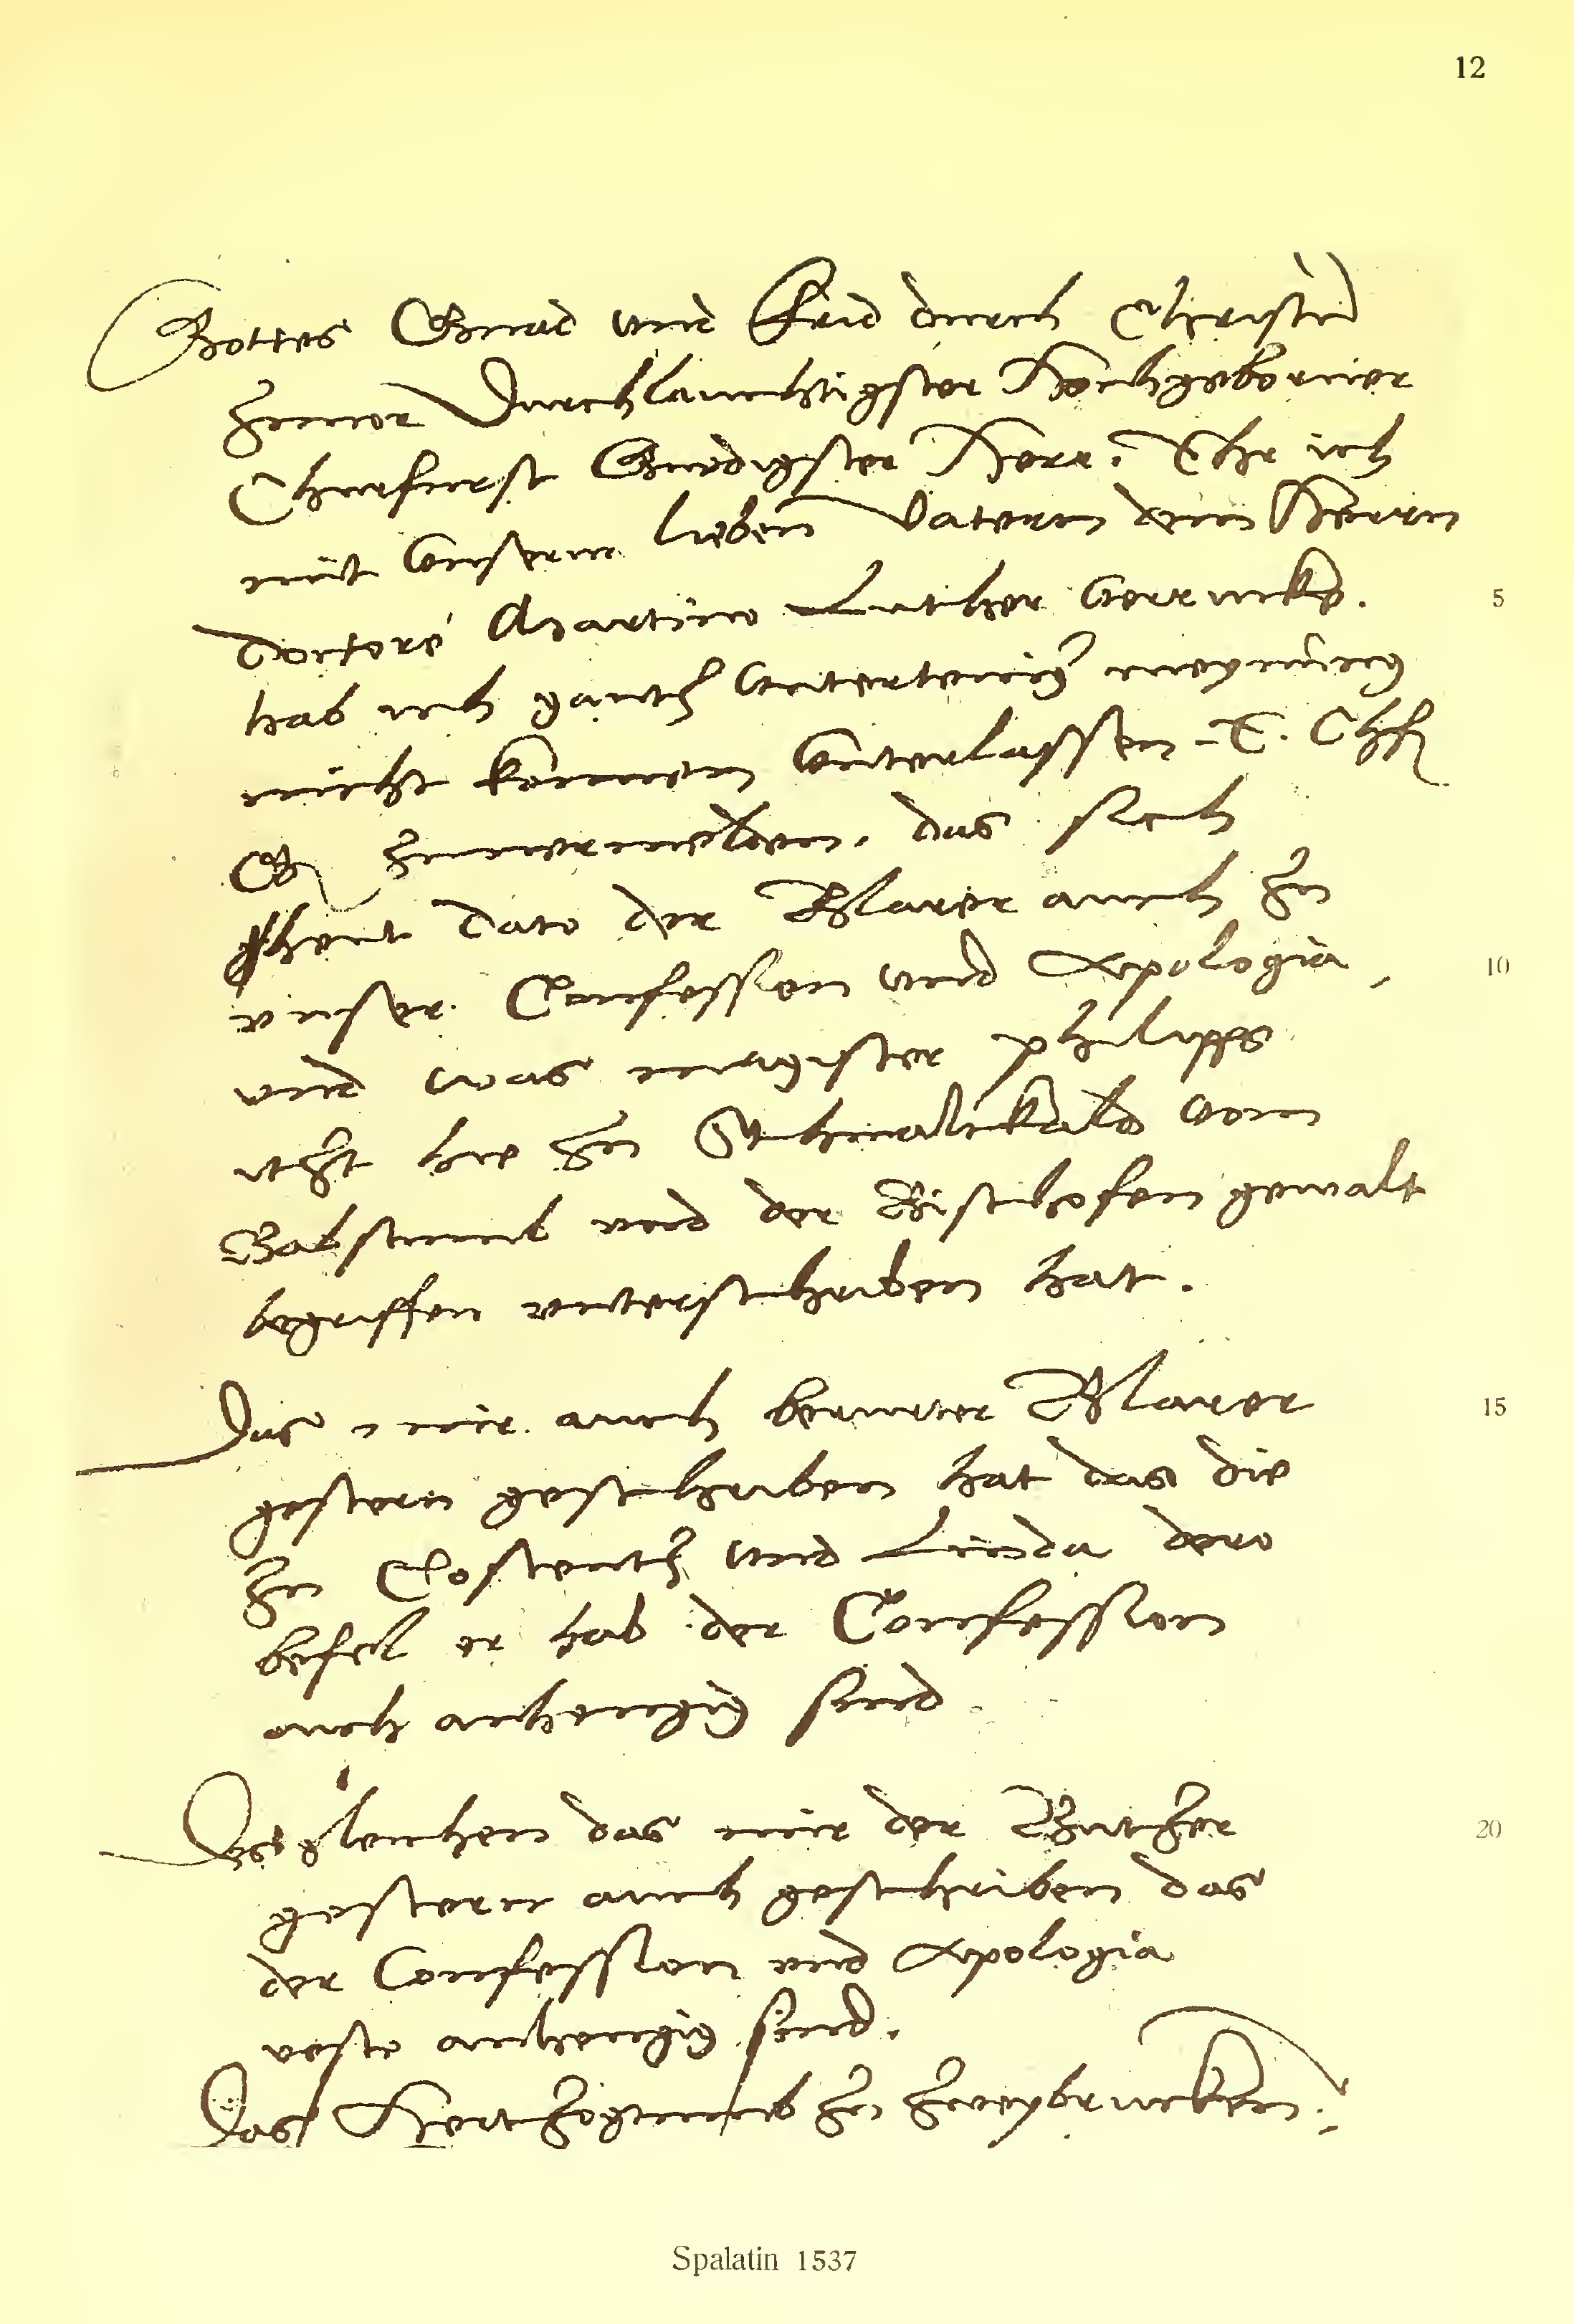 12
Gottes Gnad und Frid durch Christu
zuuor Durchlauchtigster Hochgeborner
Churfurst Gnedigster Herr. Ehr ich
mit vnserm lieben Vatern dem Herrn
doctore Martino Luther verrucke. 5
hab ich gantz vnterteniger meynung
nicht konnen vnterlassen E. Chf
G zuuermelden. das sich
heut dato der Blarer auch zu
vnser Confession vnd Apologia, 10
vnd was magister philipps
itzt hie zu Schmalckald vom
Babstumb vnd der Bischofen gewalt
begriffen vnterschriben hat.
Das mir auch berurter Blarer 15
gestern geschriben hat das die
zu Costentz vnd Linda dero
befel er hab der Confession
auch anhengig sind
Desgleichen das mir der Butzer 20
gestern auch geschriben das
der Confession vnd Apologia
veste anhengig sind.
Das Hertzogtumb zu Zweybrucken.
Spalatin 1537